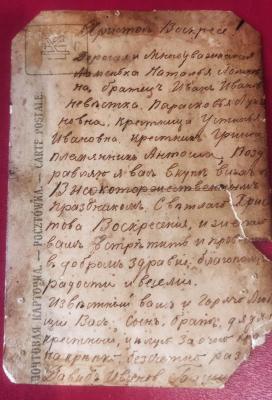 Христосъ Воскресе!
Дорогая и Многоуважаемая
Наталья
на, братецъ Иванъ Иван
невѣстка, Парасковья
вна, Крестница Устинья
Ивановна, Крестникъ Гриша
племянникъ Антоша, Позд
равляю я васъ вкупѣ всѣхъ съ
Высокоторжественнымъ
Праздникомъ. Святаго Хрис
това Воскресенія, и желаю
вамъ встрѣтить и пров
в добромъ здравіи, благопол
радости и веселіи.
Извѣстный вамъ и Горячо Лю
щій Васъ, Сынъ, братъ, дядя
крестный, цѣлую За очно
накрѣпко безсчетно раз
Давидъ Ивановъ
ПОЧТОВАЯ КАРТОЧКА. — POCZTÓWKA. — CARTE POSTALE.